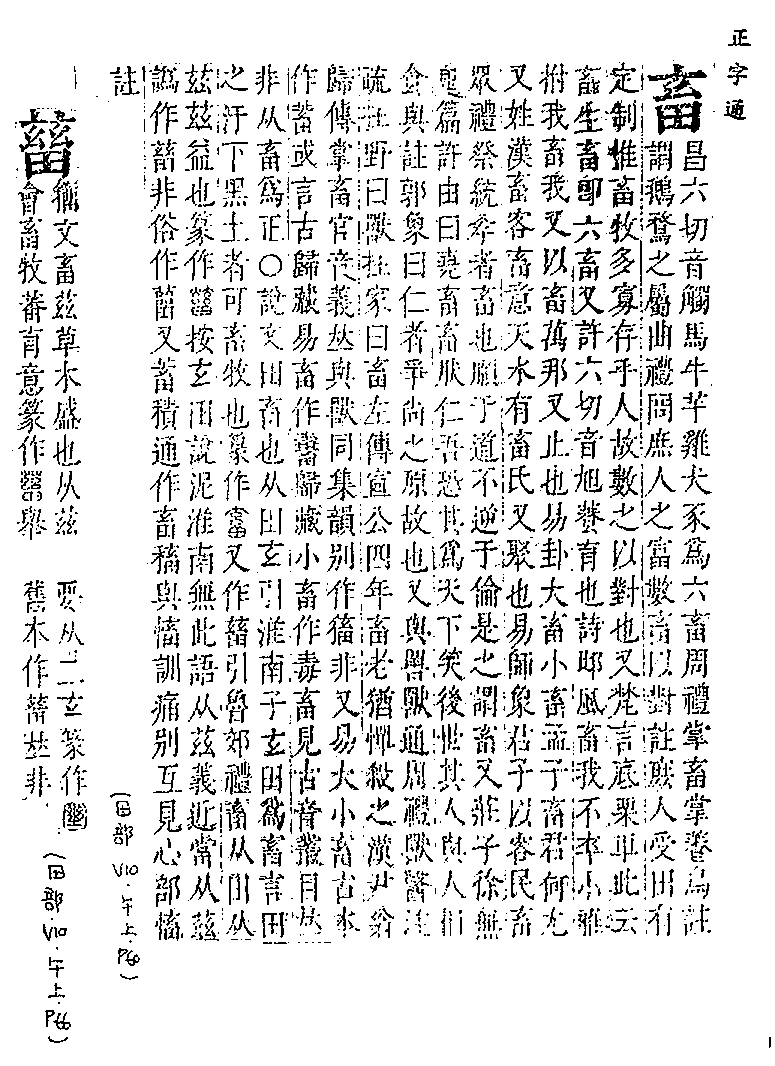 正字通
畜
昌六切音觸馬牛羊雞犬豕爲六畜周禮掌畜掌養鳥註
謂鵝鶩之屬曲禮問庶人之富數畜以對註庶人受田有
定制惟畜牧多寡存乎人故數之以對也又梵言底栗車此云
畜生畜卽六畜又許六切音旭養育也詩邶風畜我不卒小雅
拊我畜我又以畜萬邦又止也易卦大畜小畜孟子畜君何尤
又姓漢畜客畜意天水有畜氏又聚也易師象君子以容民畜
眾禮祭統孝者畜也順于道不逆于倫是之謂畜又莊子徐無
鬼篇許由曰堯畜畜肰仁吾恐其爲天下笑後世其人與人相
食與註郭象曰仁者爭尚之原故也又與嘼獸通周禮獸醫註
疏在野曰獸在家曰畜左傳宣公四年畜老猶憚殺之漢尹翁
歸傳掌畜官音義𠀤與獸同集韻別作㹖非又易大小畜古本
作蓄或言古歸藏易畜作㽥歸藏小畜作毒畜見古音叢目𠀤
非从畜爲正○說文田畜也从田玄引淮南子玄田爲畜言田
之汙下黑土者可畜牧也篆作畜又作𤲸引魯郊禮畜从田从
茲茲益也篆作𤲸按玄田說泥淮南無此語从茲義近當从茲
譌作𤲸非俗作䔰又蓄積通作畜稸與慉訓痛別互見心部慉
註
(田部 V10.午上.P60)
𤲸
籀文畜茲草木盛也从茲
會畜牧蕃育意篆作𤲸舉
要从二玄篆作
舊本作𤲸𠀤非
(田部.V10.午上.P60)